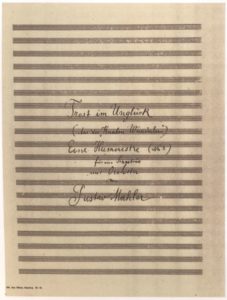 Trost im Unglück
(Aus des Knaben Wunderhorn)
Eine Humoreske
für eine Singstimme
und Orchester
Gustav Mahler